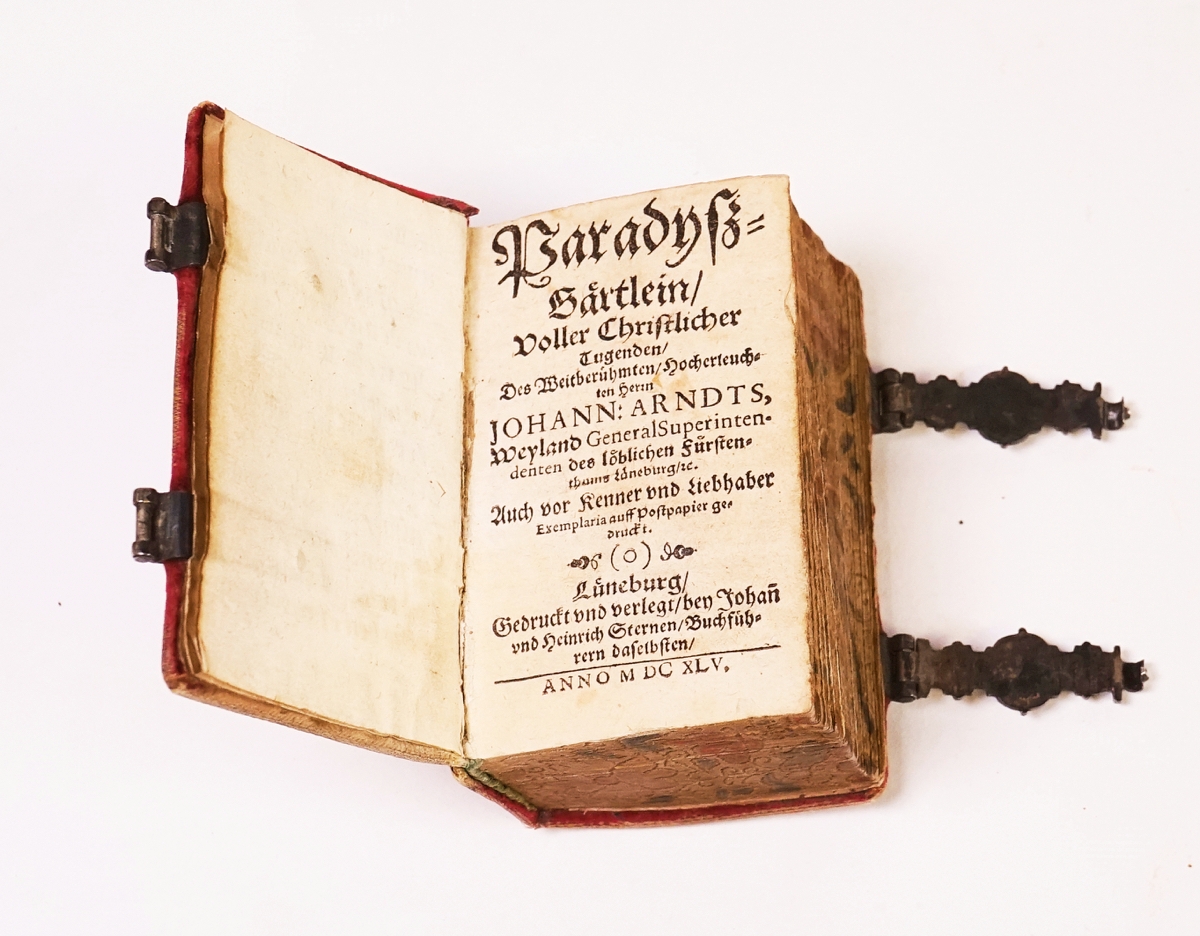 Paradyſz⸗
Gårtlein/
Voller Chriſtlicher
Tugenden/
Des Weitberühmten/Hocherleuch⸗
ten Herrn
JOHANN: ARNDTS,
Weyland GeneralSuperinten⸗
denten des lôblichen Fürſten⸗
thums Lůneburg/ꝛc.
Auch vor Kenner vnd Liebhaber
Exemplaria auff Poſtpapier ge⸗
druckt.
(O)
Lůneburg/
Gedruckt vnd verlegt/bey Johan̄
vnd Heinrich Sternen/Buchfüh⸗
rern daſelbſten/
ANNO M DC XLV.